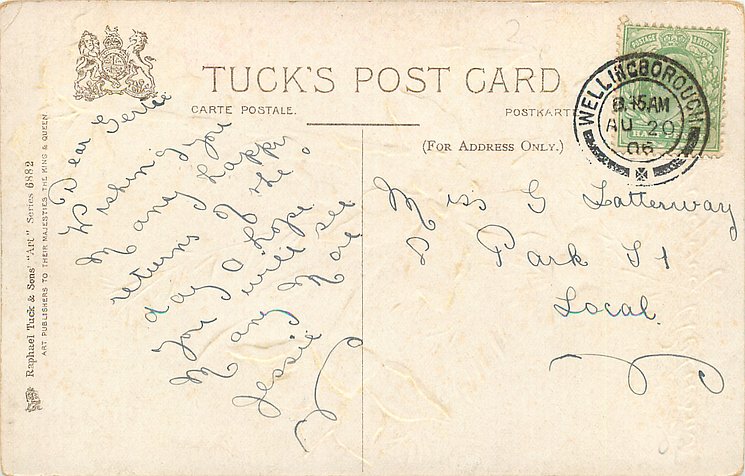 TUCK'S POST CARD
CARTE POSTALE.
POSTKARTE
(FOR ADDRESS ONLY.)
POSTAGE & REVENUE
WELLINGBOROUGH
8.45AM
AU 20
06
Dear Gertie
Wishing you
Many happy
returns of the
day I hope
you will see
Many More
Jessie
Miss G Latterway
8 Park St
Local.
Raphael Tuck & Sons' "Art" Series 6882
ART PUBLISHERS TO THEIR MAJESTIES THE KING & QUEEN
2